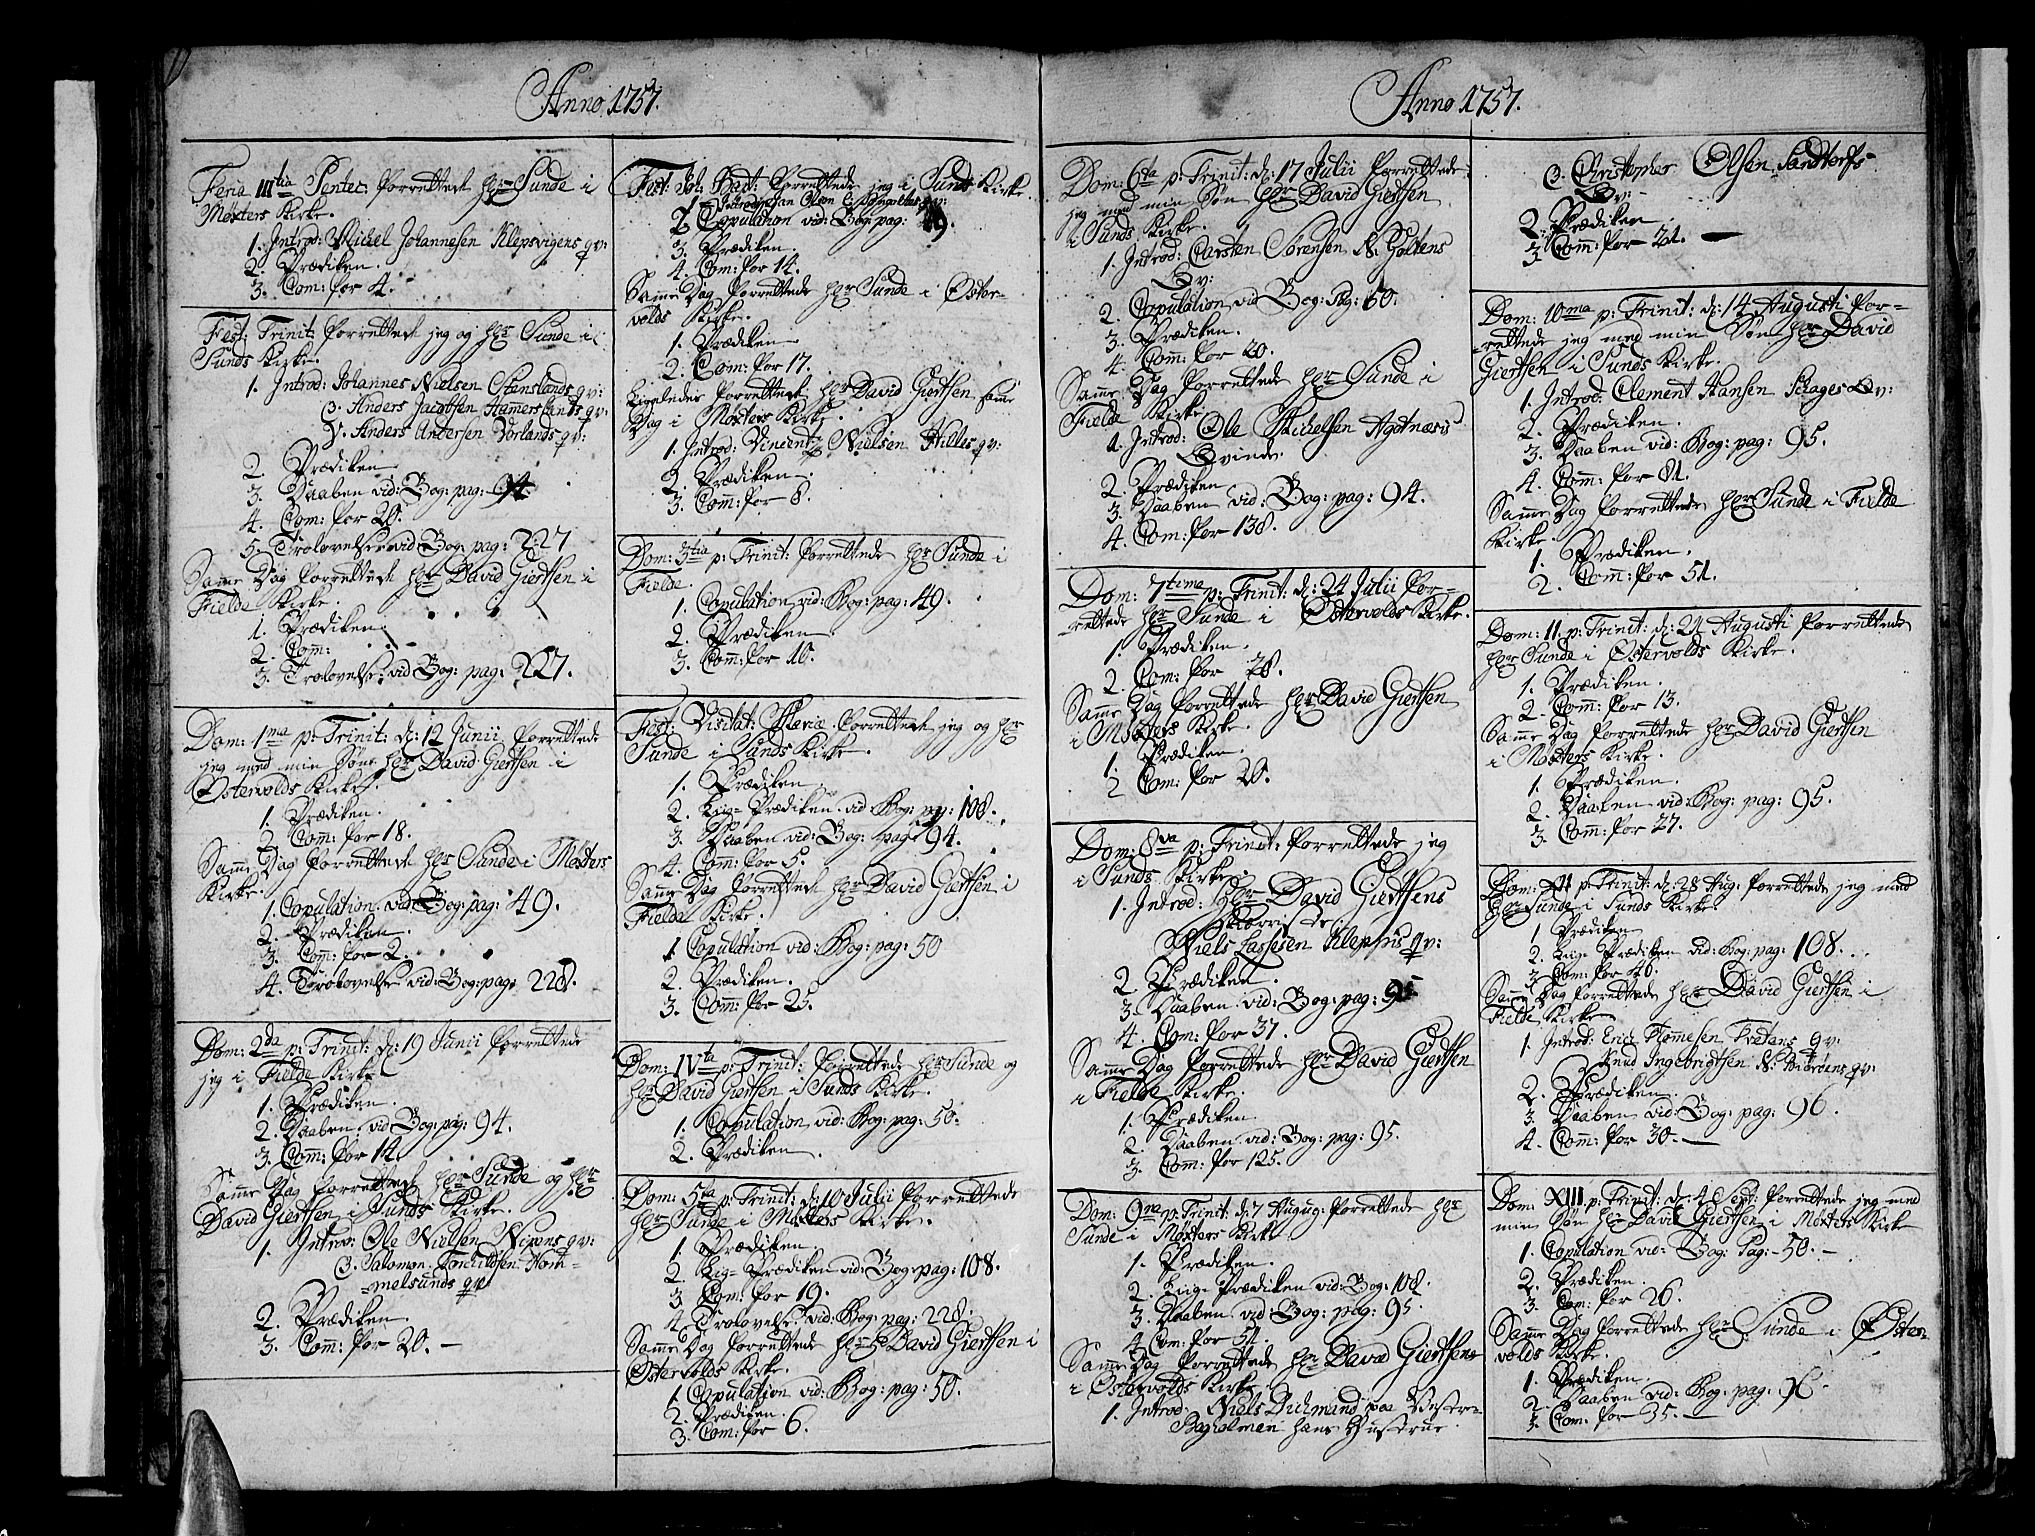 Anno 1757.
Feria IIItia Pentec: forrettede hr Sunde i
Møxters Kirke.
1. Introd: Michel Johannesen Klepsvigens qv:
2. Prædiken.
3. Com: for 4.
Fest: Trinit: forrettede jeg og hr Sunde i
Sunds Kirke.
1. Introd: Johannes Nielsen Stenslands qv:
Anders Jacobsen Hamerslands qv:
Anders Andersen Vorlands qv:
2. Prædiken
3. Daaben vid: Bog: pag: 94.
4. Com: for 20.
5. Trolovelse vid Bog: pag: 227
Samme Dag forrettede hr David Giertsen i
Fielde Kirke.
1. Prædiken.
2. Com:
3. Trolovelse vid Bog: pag: 227.
Dom: 1ma p: Trinit: d: 12 Junii forrettede
jeg med min Søn hr David Giertsen i
Østervolds Kirke.
1. Prædiken.
2. Com: for 18.
Samme Dag forrettede hr Sunde i Møxters
Kirke.
1. Copulation vid: Bog: pag: 49.
2. Prædiken.
3. Com: for 2.
4. Trolovelse vid: Bog: pag: 228.
Dom: 2da p: Trinit: d: 19 Junii forrettede
jeg i Fielde Kirke
1. Prædiken.
2. Daaben vid Bog: pag: 94.
3. Com: for 14.
Samme Dag forrettede hr Sunde og hr
David Giertsen i Sunds Kirke.
1. Introd: Ole Nielsen Nipens qv:
Salomon Torchildsen Hom-
melsunds qv:
2. Prædiken.
3. Com: for 20. -
Fest: Joh: Bapt: forrettede jeg i Sunds Kirke
1. Introd: Olsen qv:
2. Copulation vid: Bog: pag: 49.
3. Prædiken.
4. Com: for 14.
Samme Dag forrettede hr Sunde i Øster-
volds Kirke.
1. Prædiken
2. Com: for 17.
Ligeledes forrettede hr David Giertsen samme
Dag i Møxters Kirke.
1. Introd: Vincent Nielsen Hilles qv:
2. Prædiken.
3. Com: for 8.
Dom: 3tia p: Trinit: forrettede hr Sunde i
Fielde.
1. Copulation vid: Bog: pag: 49.
2. Prædiken.
3. Com: for 10.
Fest: Visitat: Mariæ forrettede jeg og hr
Sunde i Sunds Kirke.
1. Prædiken.
2. Liig-Prædiken vid: Bog: pag: 108.
3. Daaben vid: Bog: pag: 94.
4. Com: for 5.
Samme Dag forrettede hr David Giertsen i
Fielde Kirke.
1. Copulation vid: Bog: pag: 50
2. Prædiken.
3. Com: for 25.
Dom: IVta p: Trinit: forrettede hr Sunde og
hr David Giertsen i Sunds Kirke.
1. Copulation vid: Bog: pag: 50.
2. Prædiken.
Dom: 5ta p: Trinit: d: 10 Julii forrettede
hr Sunde i Møxters Kirke.
1. Prædiken.
2. Liig-Prædiken vid: Bog: pag: 108.
3. Com: for 19.
4. Trolovelse vid Bog: pag: 228.
Samme Dag forrettede hr David Giertsen i
Østervolds Kirke.
1. Copulation vid: Bog: pag: 50.
2. Prædiken.
3. Com: for 6.
Anno 1757.
Dom: 6ta p: Trinit: d: 17 Julii forrettede
jeg med min Søn hr David Giertsen
i Sunds Kirke.
1. Introd: Carsten Sørensen N: Goltens
Qv:
2. Copulation vid Bog: Pag: 50.
3. Prædiken.
4. Com: for 20.
Samme Dag forrettede hr Sunde i
Fielde Kirke
1. Introd: Ole Michelsen Agotnæsis
Qvinde.
2. Prædiken
3. Daaben vid: Bog: pag: 94.
4. Com: for 138.
Dom: 7tima p: Trinit: d: 24 Julii for-
rettede hr Sunde i Østervolds Kirke.
1. Prædiken.
2. Com: for 28.
Samme Dag forrettede hr David Giertsen
i Møxters Kirke.
1. Prædiken.
2. Com: for 20.
Dom: 8va p: Trinit: forrettede jeg
i Sunds Kirke.
1. Introd: Hr David Giertsens
Kiæreste.
Niels Lassesen Klepsis qv:
2. Prædiken.
3. Daaben vid: Bog: pag: 95
4. Com: for 37.
Samme Dag forrettede hr David Giertsen
i Fielde Kirke.
1. Prædiken.
2. Daaben vid: Bog: pag: 95.
3. Com: for 125.
Dom: 9na p: Trinit: d: 7 Augu: forrettede hr
Sunde i Møxters Kirke
1. Prædiken.
2. Liig-Prædiken vid: Bog: 108.
3. Daaben vid: Bog: pag: 95.
4. Com: for 54.
Samme Dag forrettede hr David Giertsen
i Østervolds Kirke.
1. Introd: Niels Dichmand paa Vestre-
Bagholmen hans Hustrue
Christopher Olsen Sandtorfs
Qv:
2. Prædiken
3. Com: for 21.
Dom: 10ma p: Trinit: d: 14 Augusti for-
rettede jeg med min Søn hr David
Giertsen i Sunds Kirke.
1. Introd: Clement Hansen Schages Qv:
2. Prædiken.
3. Daaben vid: Bog: pag: 95.
4. Com: for 81.
Samme Dag forrettede hr Sunde i Fielde
Kirke.
1. Prædiken.
2. Com: for 51.
Dom: 11 p: Trinit: d: 21 Augusti forrettede
hr Sunde i Østervolds Kirke.
1. Prædiken.
2. Com: for 13.
Samme Dag forrettede hr David Giertsen
i Møxters Kirke.
1. Prædiken.
2. Daaben vid: Bog: pag: 95.
3. Com: for 27.
Dom: XII p: Trinit: d: 28 Aug: forrettede jeg med
hr Sunde i Sunds Kirke.
1. Prædiken
2. Liig-Prædiken vid: Bog: pag: 108.
3. Com: for 40.
Samme Dag forrettede hr David Giertsen i
Fielde Kirke
1. Introd: Erich Tommesen Tretens qv:
Knud Ingebrigtsen N: Biørøens qv:
2. Prædiken.
3. Daaben vid: Bog: pag: 96.
4. Com: for 30. -
Dom: XIII p: Trinit: d: 4 Sept: forrettede jeg med
min Søn hr David Giertsen i Møxters Kirke
1. Copulation vid: Bog: Pag: 50. -
2. Prædiken.
3. Com: for 26.
Samme Dag forrettede hr Sunde i Øster-
volds Kirke.
1. Prædiken.
2. Daaben vid: Bog: pag: 96.
3. Com: for 35. -